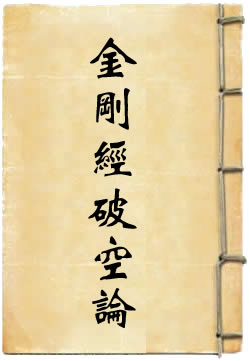 金剛經破空論